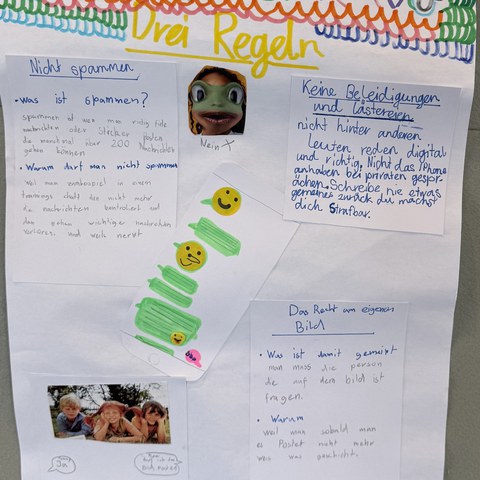 Drei Regeln
Nicht spammen
• was ist spammen?
spammen ist wen man richtig fiele
nachrichten oder Sticker posten
da manchmal über 200 Nachrichten
geben können
• Warum darf man nicht spammen
weil man zumbeispiel in einem
nicht mehr
nachrichten kontroliert und
dan gehen wichtige nachrichten
verloren und weils nervt
Nein X
Keine Beleidigungen
und Lästereien
nicht hinter anderen
Leuten reden digital
und richtig. Nicht das iPhone
anhaben bei privaten gespre-
ächen. Schreibe nie etwas
gemeines zurück du machst
dich Strafbar.
Das Recht am eigenen
Bild
• Was ist damit gemeint
man muss die person
die auf dem bild ist
fragen.
• Warum
weil man sobald man
es Postet nicht mehr
weis was geschieht.
Ja